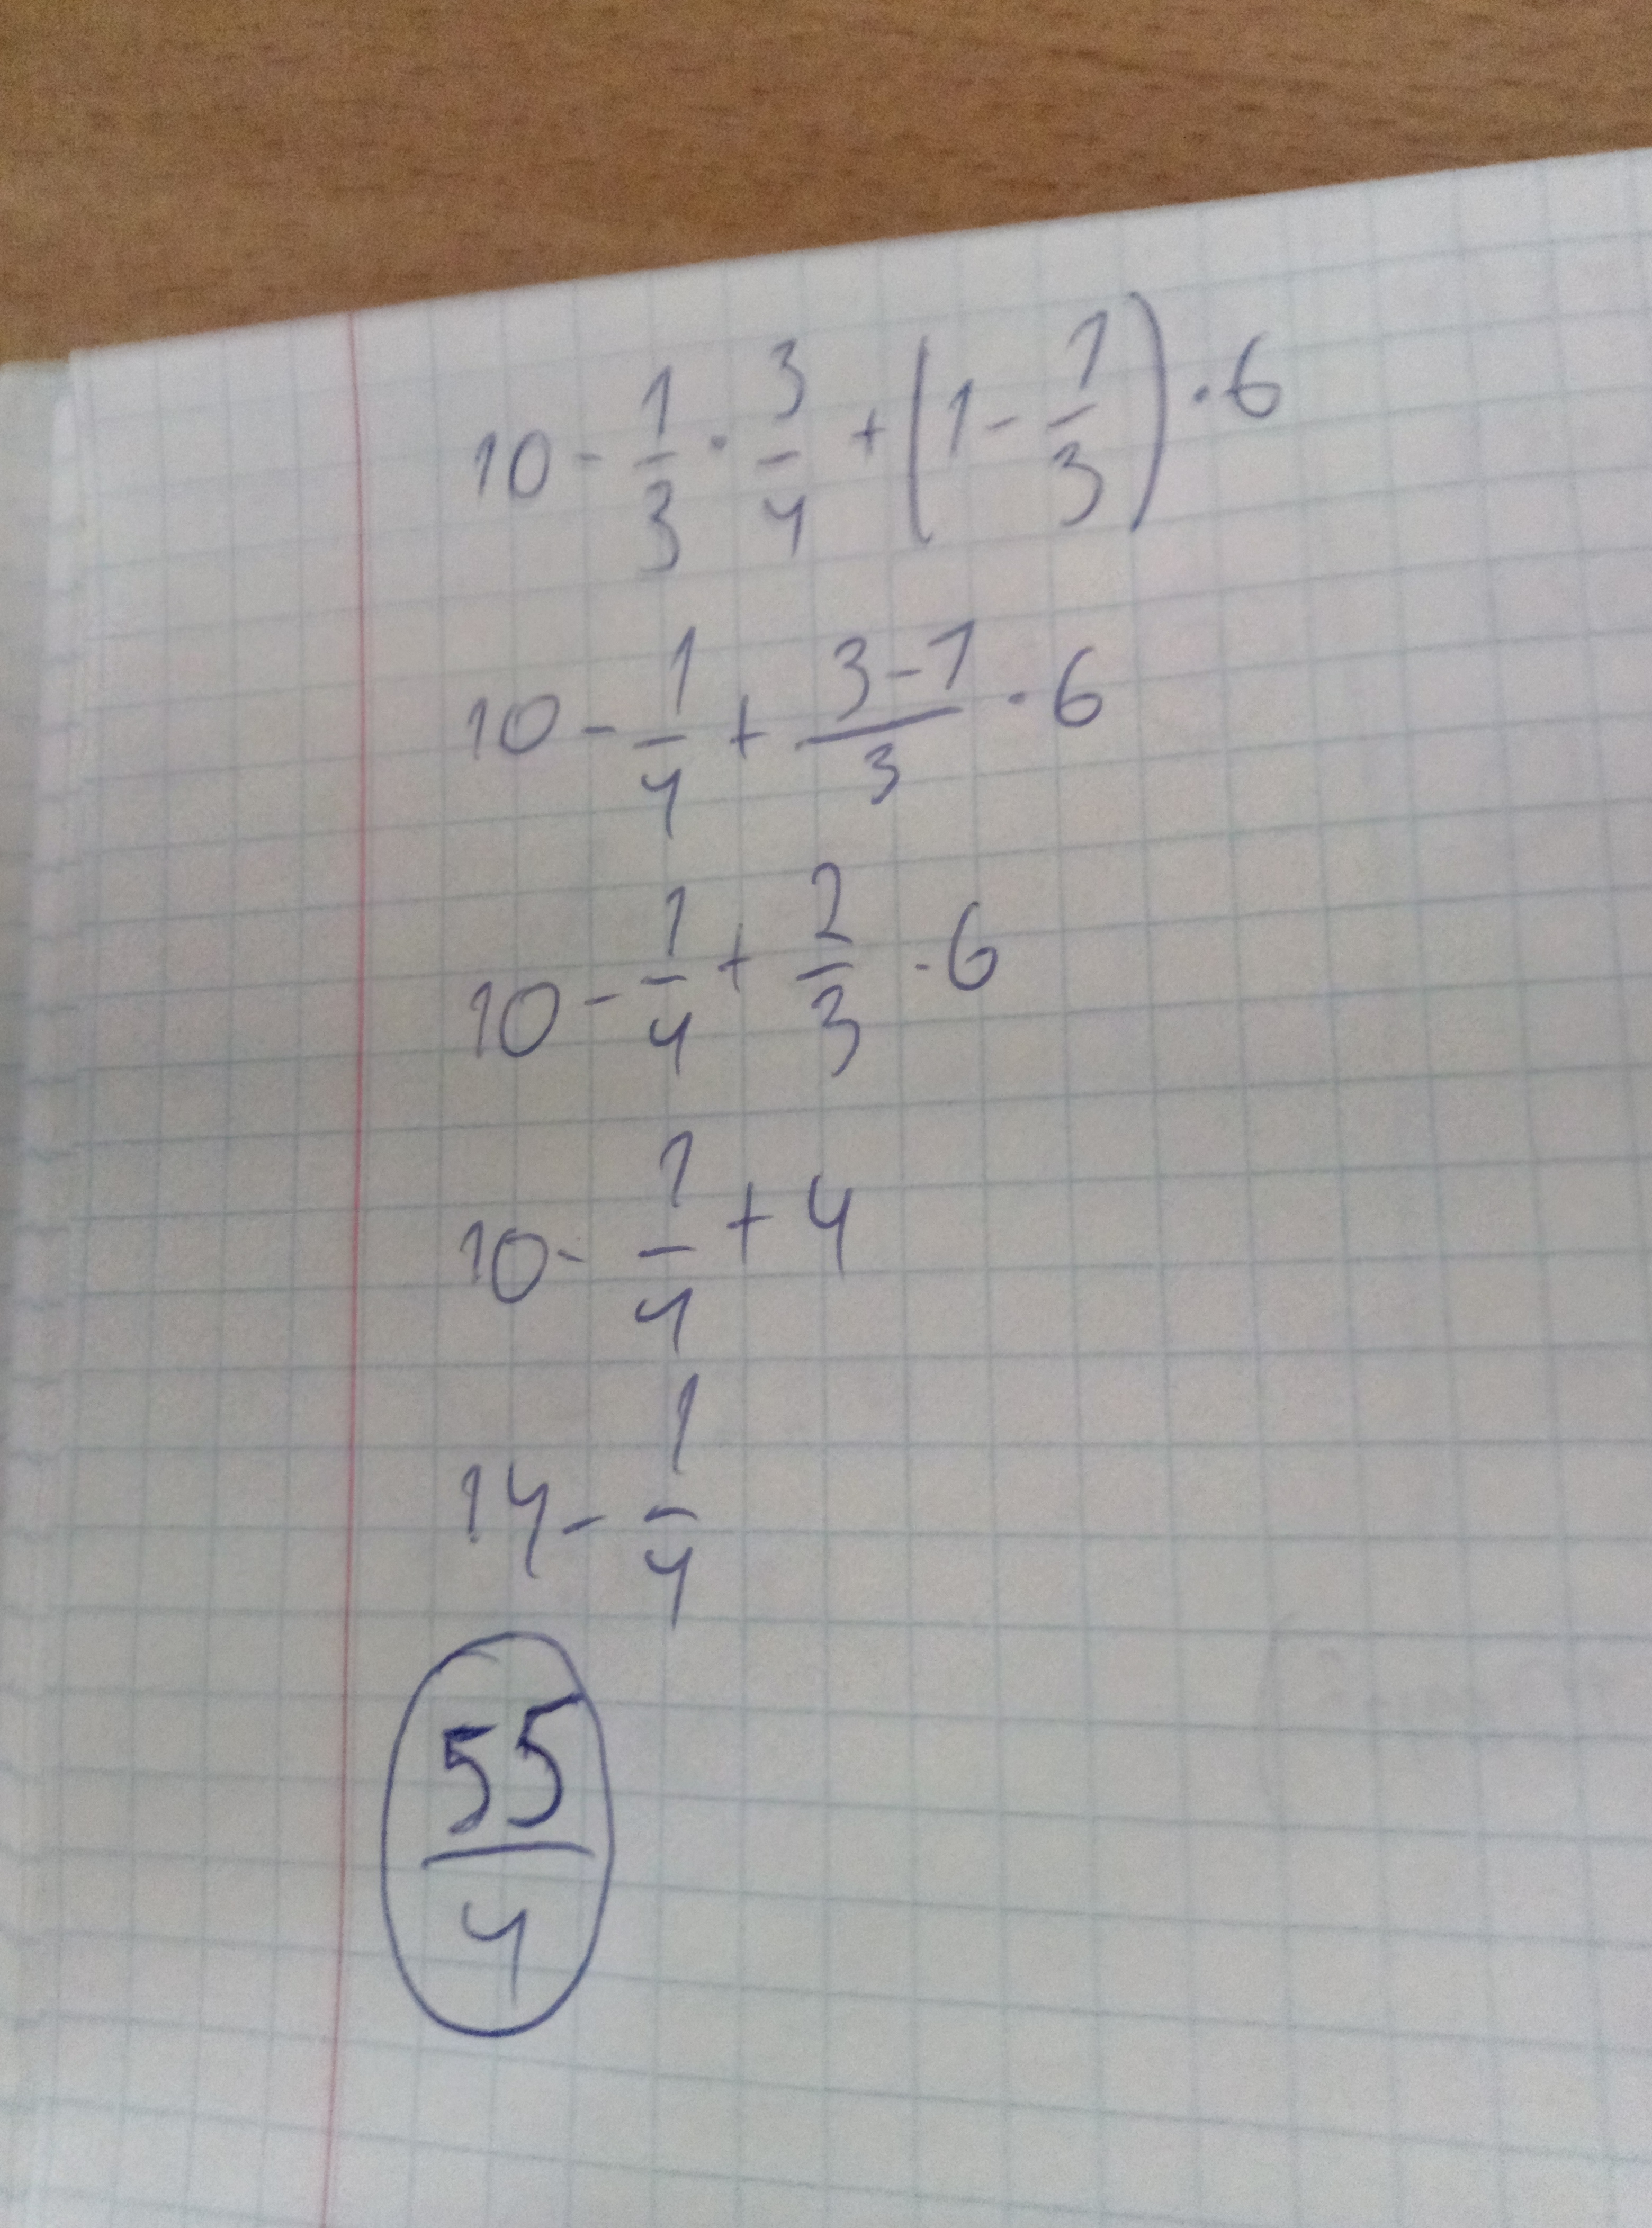 10 - 1/3 · 3/4 + (1 - 1/3) · 6
10 - 1/4 + 3-1/3 · 6
10 - 1/4 + 2/3 · 6
10 - 1/4 + 4
14 - 1/4
55/4